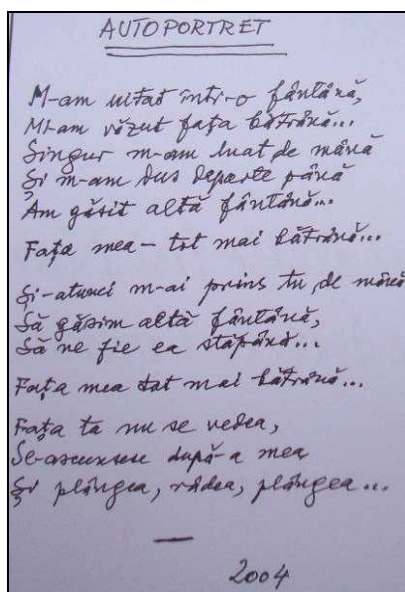 AUTOPORTRET
M-am uitat într-o fântână,
Mi-am văzut fața bătrână...
Singur m-am luat de mână
Și m-am dus departe până
Am găsit altă fântână...
Fața mea - tot mai bătrână...
Și-atunci m-ai prins tu de mână
Să găsim altă fântână,
Să ne fie ea stăpână...
Fața mea tot mai bătrână...
Fața ta nu se vedea,
Se-ascunsese după-a mea
Și plângea, râdea, plângea...
2004